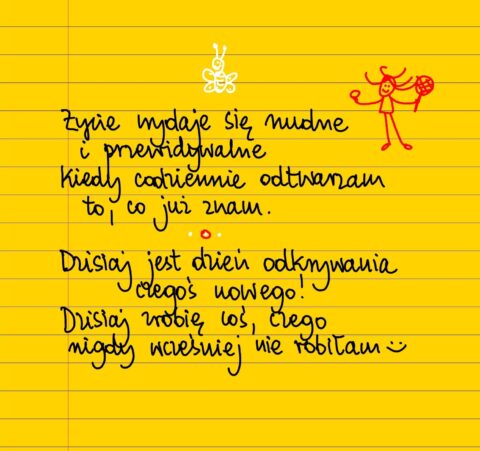 Życie wydaje się nudne
i przewidywalne
Kiedy codziennie odtwarzam
to, co już znam.
Dzisiaj jest dzień odkrywania
czegoś nowego!
Dzisiaj zrobię coś, czego
nigdy wcześniej nie robiłam